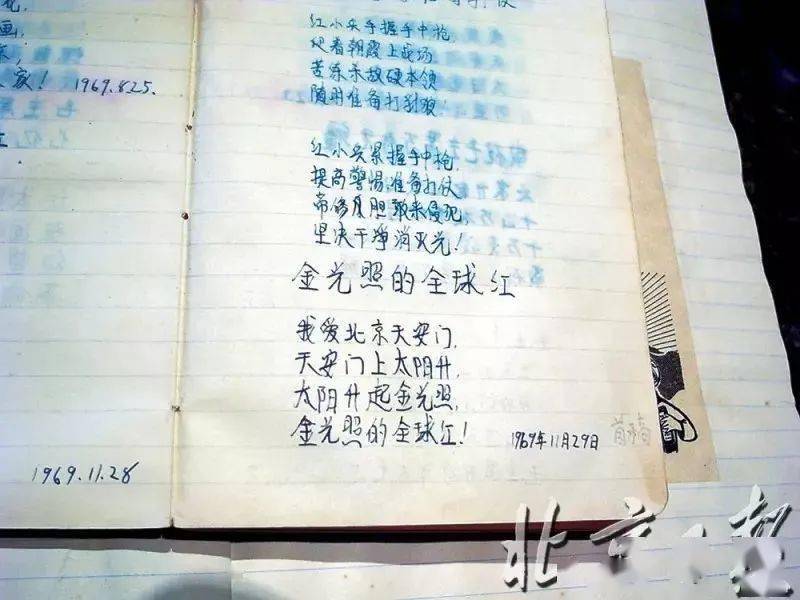 花,
画,
家! 1969.8.25.
1969.11.28
红小兵手握手中枪,
迎着朝霞上战场
苦练杀敌硬本领
随时准备打豺狼!
红小兵紧握手中枪,
提高警惕,准备打仗
帝修反胆敢来侵犯
坚决干净消灭光!
金光照的全球红
我爱北京天安门,
天安门上太阳升,
太阳升起金光照,
金光照的全球红!
1969年11月29日 首稿
北京